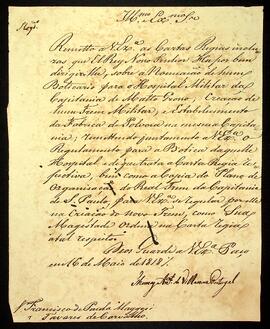 Ill.mo e Ex.mo Snr.
Remetto a V. Ex.a as Cartas Regias incluzas
que El Rey Nosso Senhor Ha por bem
dirigir-lhe, sobre a Nomeação de hum
Boticario para o Hospital Militar da
Capitania de Mato Grosso; Creação de
hum Trem Militar, e Estabelecimento
da Fabrica de Polvora na mesma Capita
nia; remettendo juntamente a V. Ex.a o
Regulamento para a Botica daquelle
Hospital, de que trata a Carta Regia res
pectiva, bem como a Copia do Plano de
Organização do Real Trem da Capitania
de S. Paulo, para V. Ex.a se regular por elle
na Creação do novo Trem, como Sua
Magestade Ordena na Carta Regia
a tal respeito.
Deos Guarde a V. Ex.a Paço
em 16 de Maio de 1818.
Thomaz Ant.o de Villanova Portugal
Francisco de Paula Magessi
Tavares de Carvalho